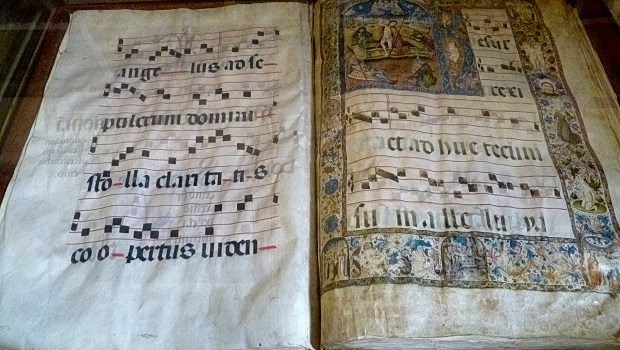 ange lus ad se
pulcrum domini
sto-lla clari ta-ti-s
co o-pertus viden-
esur
rexi
et ad huc tecum
sum alleluya